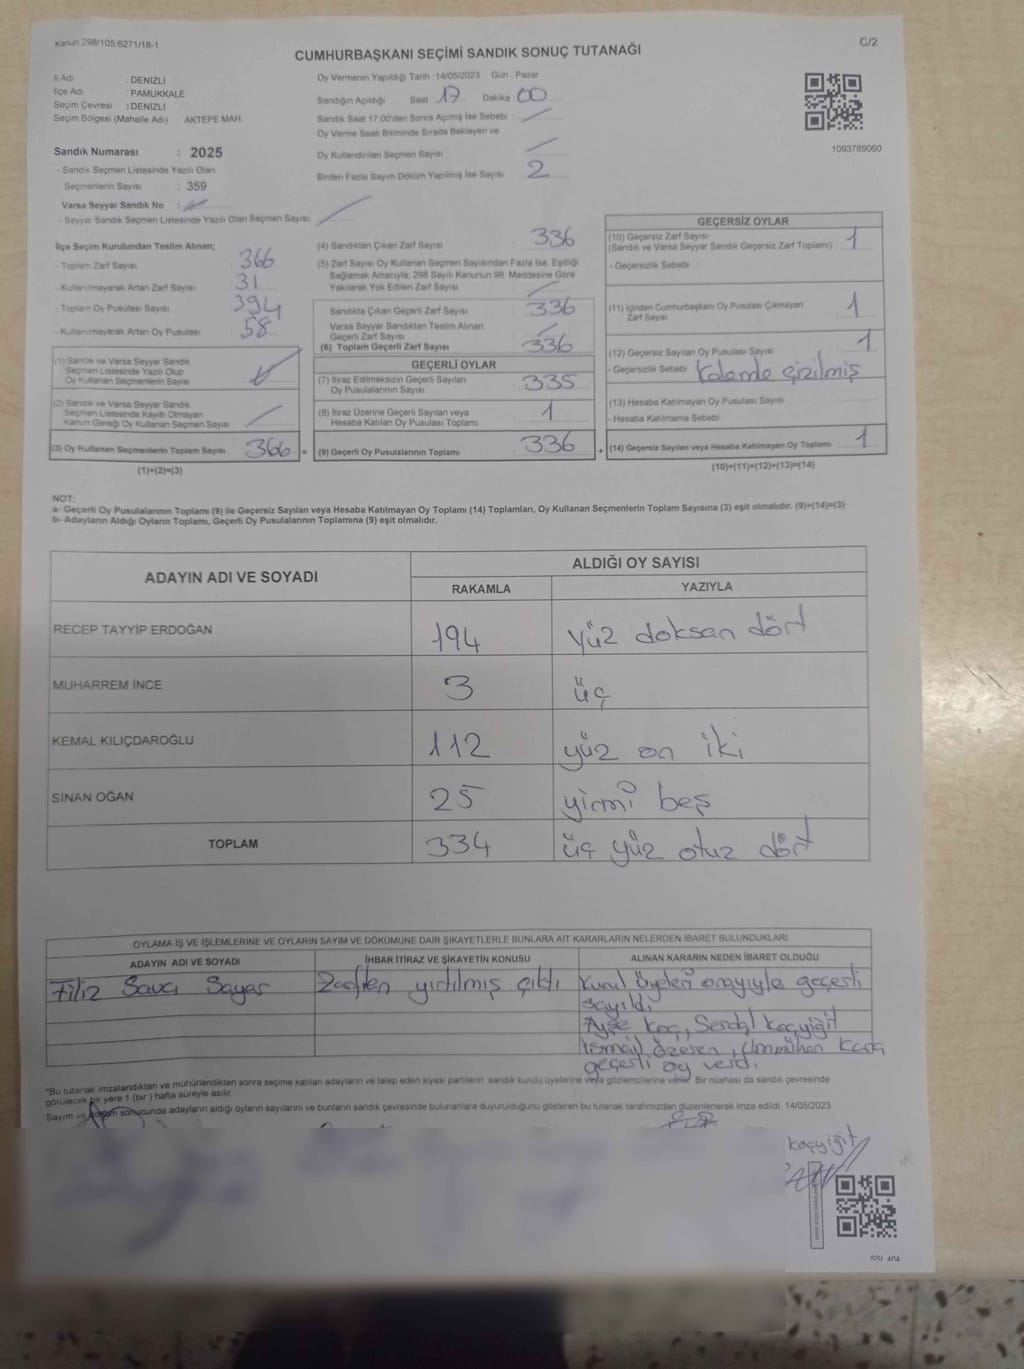 Kanun:298/105;6271/18-1
C/2
CUMHURBAŞKANI SEÇİMİ SANDIK SONUÇ TUTANAĞI
İl Adı : DENİZLİ
İlçe Adı : PAMUKKALE
Seçim Çevresi : DENİZLİ
Seçim Bölgesi (Mahalle Adı) : AKTEPE MAH.
Sandık Numarası : 2025
- Sandık Seçmen Listesinde Yazılı Olan
Seçmenlerin Sayısı : 359
Varsa Seyyar Sandık No :
- Seyyar Sandık Seçmen Listesinde Yazılı Olan Seçmen Sayısı
Oy Vermenin Yapıldığı Tarih : 14/05/2023 Gün : Pazar
Sandığın Açıldığı Saat : 17 Dakika : 00
Sandık Saat 17:00'den Sonra Açılmış İse Sebebi :
Oy Verme Saati Bitiminde Sırada Bekleyen ve
Oy Kullandırılan Seçmen Sayısı
Birden Fazla Sayım Döküm Yapılmış İse Sayısı 2
1093789060
İlçe Seçim Kurulundan Teslim Alınan;
- Toplam Zarf Sayısı 366
- Kullanılmayarak Artan Zarf Sayısı 31
- Toplam Oy Pusulası Sayısı 394
- Kullanılmayarak Artan Oy Pusulası 58
(1) Sandık ve Varsa Seyyar Sandık
Seçmen Listesinde Yazılı Olup
Oy Kullanan Seçmenlerin Sayısı
(2) Sandık ve Varsa Seyyar Sandık
Seçmen Listesinde Kayıtlı Olmayan
Kanun Gereği Oy Kullanan Seçmen Sayısı
(3) Oy Kullanan Seçmenlerin Toplam Sayısı 366 =
(1)+(2)=(3)
(4) Sandıktan Çıkan Zarf Sayısı 336
(5) Zarf Sayısı Oy Kullanan Seçmen Sayısından Fazla İse, Eşitliği
Sağlamak Amacıyla; 298 Sayılı Kanunun 98. Maddesine Göre
Yakılarak Yok Edilen Zarf Sayısı
Sandıkta Çıkan Geçerli Zarf Sayısı 336
Varsa Seyyar Sandıktan Teslim Alınan
Geçerli Zarf Sayısı
(6) Toplam Geçerli Zarf Sayısı 336
GEÇERLİ OYLAR
(7) İtiraz Edilmeksizin Geçerli Sayılan
Oy Pusulalarının Sayısı 335
(8) İtiraz Üzerine Geçerli Sayılan veya
Hesaba Katılan Oy Pusulası Toplamı 1
(9) Geçerli Oy Pusulalarının Toplamı 336 +
GEÇERSİZ OYLAR
(10) Geçersiz Zarf Sayısı
(Sandık ve Varsa Seyyar Sandık Geçersiz Zarf Toplamı) 1
- Geçersizlik Sebebi :
(11) İçinden Cumhurbaşkanı Oy Pusulası Çıkmayan
Zarf Sayısı 1
(12) Geçersiz Sayılan Oy Pusulası Sayısı 1
- Geçersizlik Sebebi Kalemle çizilmiş
(13) Hesaba Katılmayan Oy Pusulası Sayısı
- Hesaba Katılmama Sebebi :
(14) Geçersiz Sayılan veya Hesaba Katılmayan Oy Toplamı 1
(10)+(11)+(12)+(13)=(14)
NOT:
a- Geçerli Oy Pusulalarının Toplamı (9) ile Geçersiz Sayılan veya Hesaba Katılmayan Oy Toplamı (14) Toplamları, Oy Kullanan Seçmenlerin Toplam Sayısına (3) eşit olmalıdır. (9)+(14)=(3)
b- Adayların Aldığı Oyların Toplamı, Geçerli Oy Pusulalarının Toplamına (9) eşit olmalıdır.
ADAYIN ADI VE SOYADI
ALDIĞI OY SAYISI
RAKAMLA YAZIYLA
RECEP TAYYİP ERDOĞAN 194 yüz doksan dört
MUHARREM İNCE 3 üç
KEMAL KILIÇDAROĞLU 112 yüz on iki
SİNAN OĞAN 25 yirmi beş
TOPLAM 334 üç yüz otuz dört
OYLAMA İŞ VE İŞLEMLERİNE VE OYLARIN SAYIM VE DÖKÜMÜNE DAİR ŞİKAYETLERLE BUNLARA AİT KARARLARIN NELERDEN İBARET BULUNDUKLARI
ADAYIN ADI VE SOYADI İHBAR İTİRAZ VE ŞİKAYETİN KONUSU ALINAN KARARIN NEDEN İBARET OLDUĞU
Filiz Savcı Sayar Zarftan yırtılmış çıktı Kurul Üyeleri onayıyla geçerli
sayıldı
Ayşe Koç, Serdal Koçyiğit
İsmail Özeren, Ümmühan Kara
geçerli oy verdi.
"Bu tutanak imzalandıktan ve mühürlendikten sonra seçime katılan adayların ve talep eden siyasi partilerin sandık kurulu üyelerine veya gözlemcilerine verilir. Bir nüshası da sandık çevresinde
görülecek bir yere 1 (bir) hafta süreyle asılır.
Sayım ve döküm sonucunda adayların aldığı oyların sayılarını ve bunların sandık çevresinde bulunanlara duyurulduğunu gösteren bu tutanak tarafımızdan düzenlenerek imza edildi. 14/05/2023
Koçyiğit
SSI 404